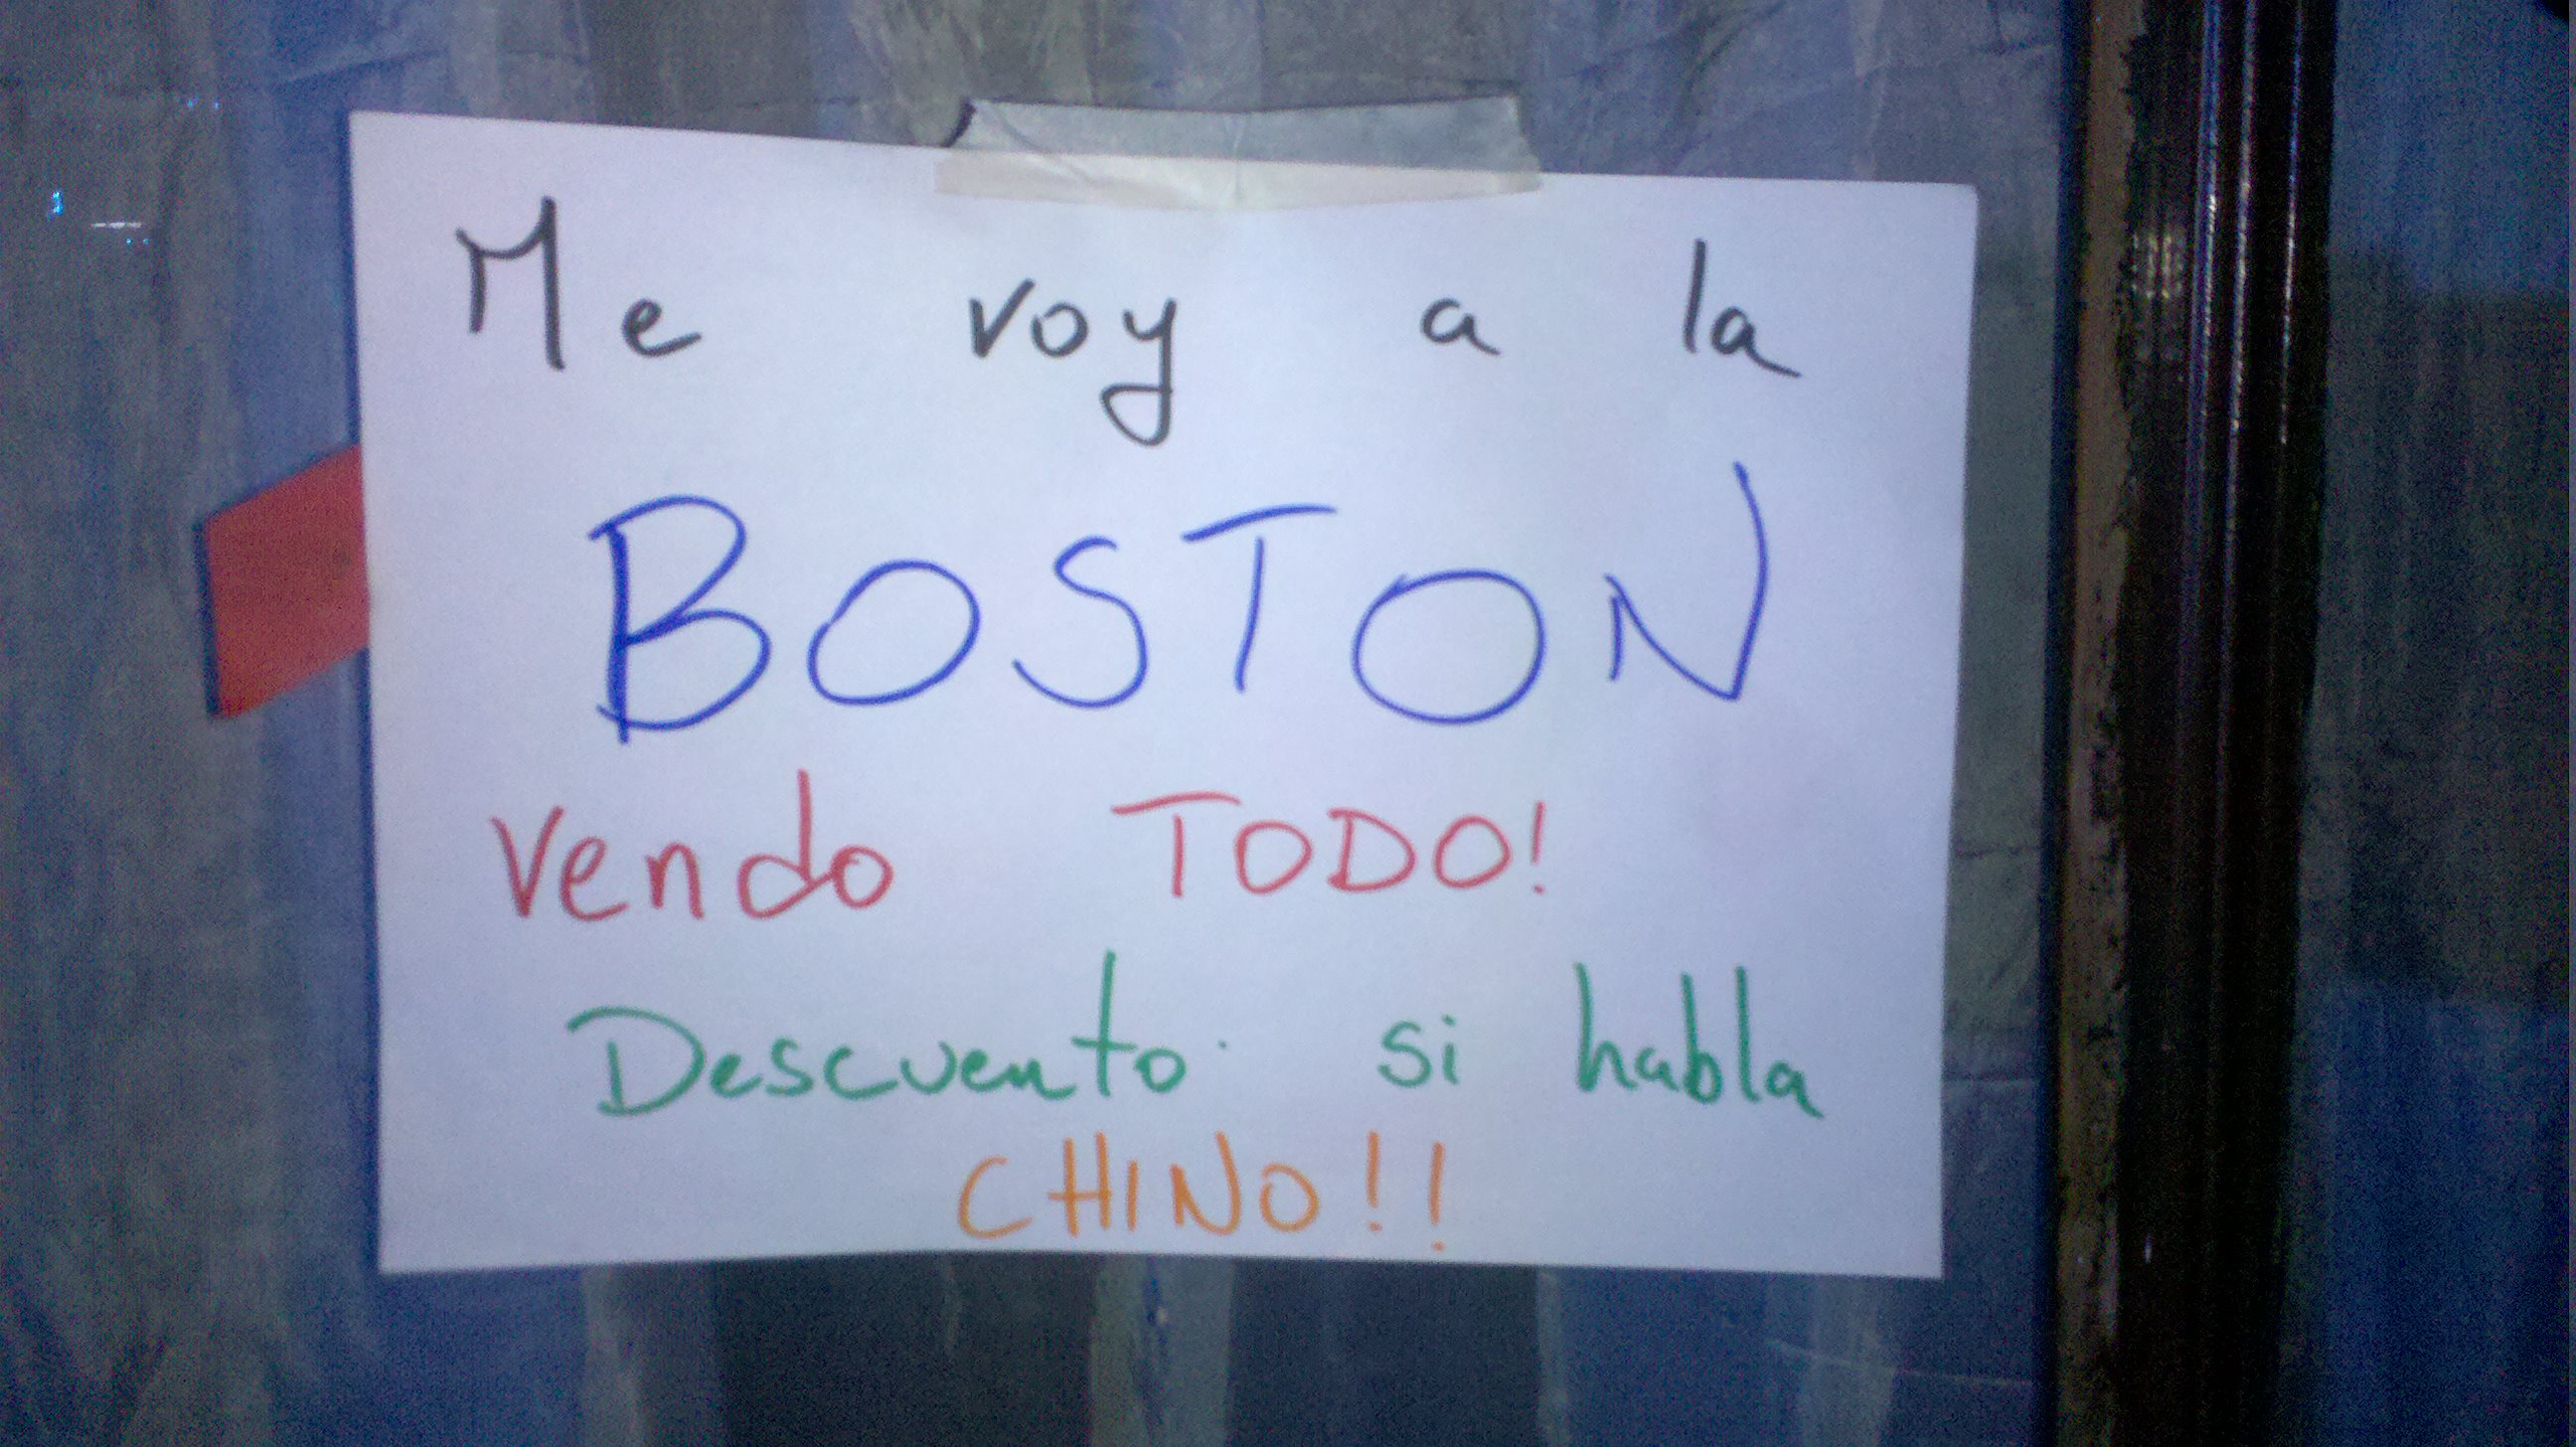 Me voy a la
BOSTON
Vendo TODO!
Descuento si habla
CHINO!!